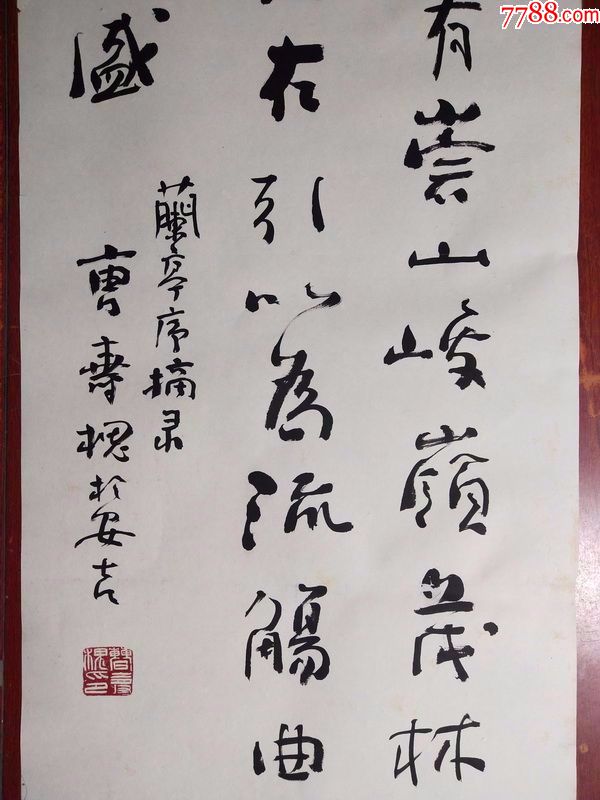 7788.com
有崇山峻嶺茂林
右引以為流觴曲
盛
蘭亭序摘录
曹壽槐於安吉
曹壽槐印